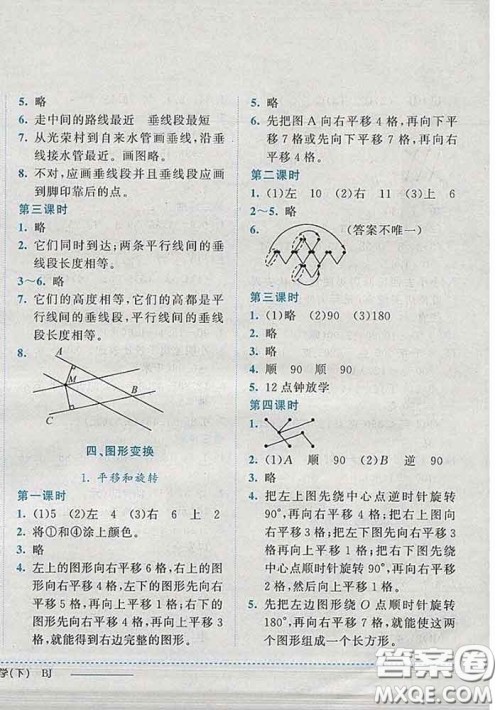 5. 略
6. 走中间的路线最近　垂线段最短
7. 从光荣村到自来水管画垂线,沿垂
线接水管最近。画图略。
8. 不对,应画垂线段并且垂线段应画
到脚印靠后的点。
第三课时
1. 略
2. 它们同时到达;两条平行线间的垂
线段长度相等。
3～6. 略
7. 它们的高度相等,它们的高都是平
行线间的垂线段,平行线间的垂线
段长度相等。
8.
A
M
B
C
四、图形变换
1. 平移和旋转
第一课时
1. (1)5　左　4　(2)右　6　上　2
2. 将①和④涂上颜色。
3. 略
4. 左上的图形向右平移6格,右上的图
形向右平移4格,左下的图形先向右
平移4格,再向上平移1格,右下的图
形先向右平移4格,再向上平移1格,
就能得到右边完整的图形。
学(下)　BJ
5. 略
6. 先把图A向右平移4格,再向下平
移7格或先向下平移7格,再向右
平移4格。
第二课时
1. (1)左　10　(2)右　11　(3)上　6
2～5. 略
6.
(答案不唯一)
第三课时
1. (1)略　(2)90　(3)180
2. 略
3. 略
4. 顺　90　顺　90
5. 12点钟放学
第四课时
1.
2. 略
3. (1)A　顺　90　(2)B　逆　90
4. 把左上图先绕中心点逆时针旋转
90°,再向右平移4格;把右上图先
绕中心点顺时针旋转90°,再向左
平移4格;把右下图先绕中心点顺
时针旋转90°,再向左平移4格,最
后向上平移1格;把左下图形先绕
中心点逆时针旋转90°,再向右平移
4格,然后向上平移1格。
5. 把左边图形绕O点顺时针旋转
180°,再向右平移1格,就能使这两
个图形组成一个长方形。
答案圈
MXQE.COM